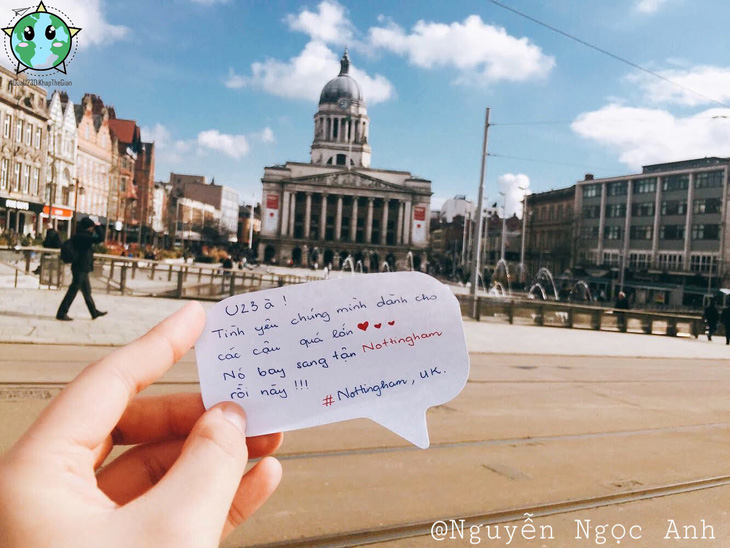 U23 à !
Tình yêu chúng mình dành cho
các cậu quá lớn
Nó bay sang tận Nottingham
rồi này !!!
#Nottingham, U.K.
@Nguyễn Ngọc Anh